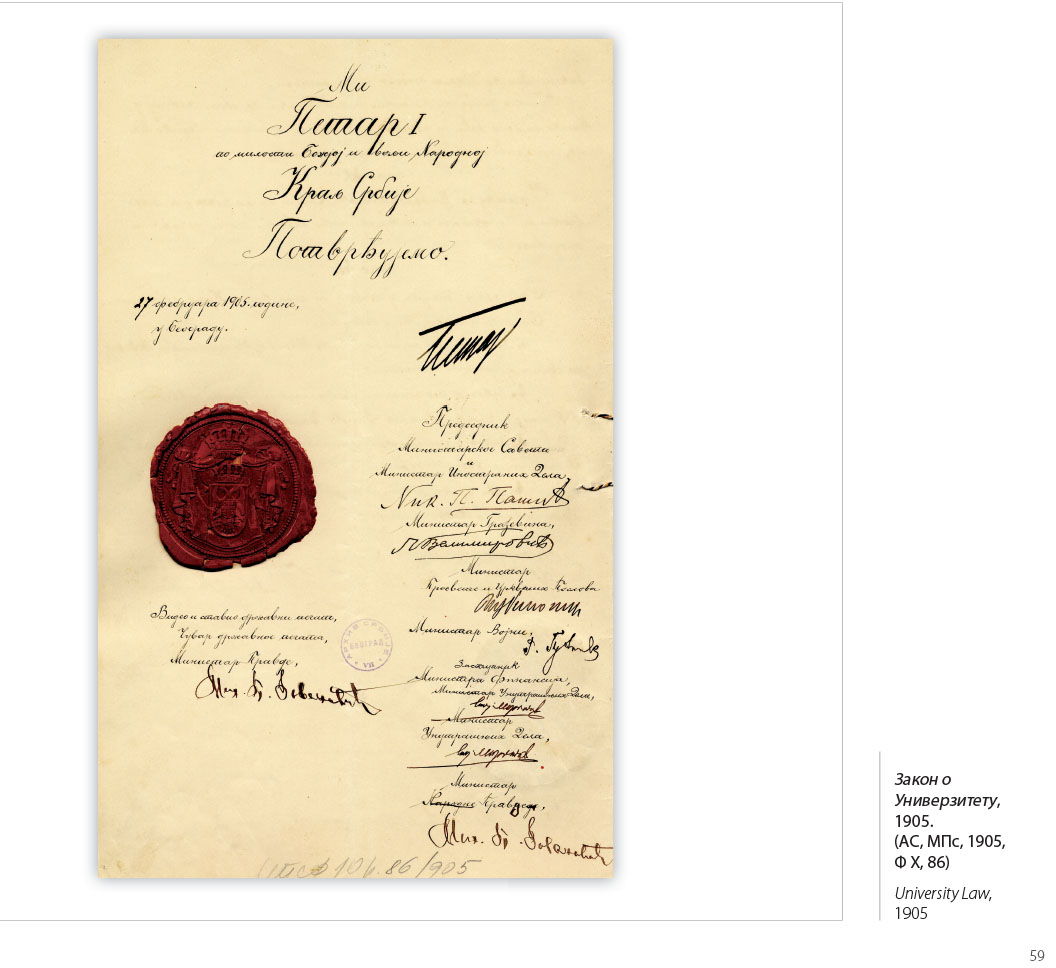 Ми
Петар I
по милости Божјој и вољи Народној
Краљ Србије
Потврђујемо.
27 фебруара 1905. године,
у Београду.
Петар
Председник
Министарског Савета
и
Министар Иностраних Дела,
Ник. П. Пашић
Министар Грађевина,
Министар
Просвете и Црквених Послова
Министар Војни,
Видео и ставио државни печат,
Чувар државног печата,
Министар Правде,
АРХИВ СРБИЈЕ
БЕОГРАД
Заступник
Министра Финансија,
Министар Унутрашњих Дела,
Министар
Унутрашњих Дела,
Министар
Правде,
86/905
Закон о
Универзитету,
1905.
(АС, МПс, 1905,
Ф X, 86)
University Law,
1905
59